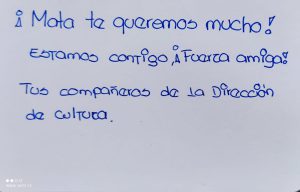 ¡Mota te queremos mucho!
Estamos contigo, ¡Fuerza amiga!
Tus compañeros de la Dirección
de cultura.